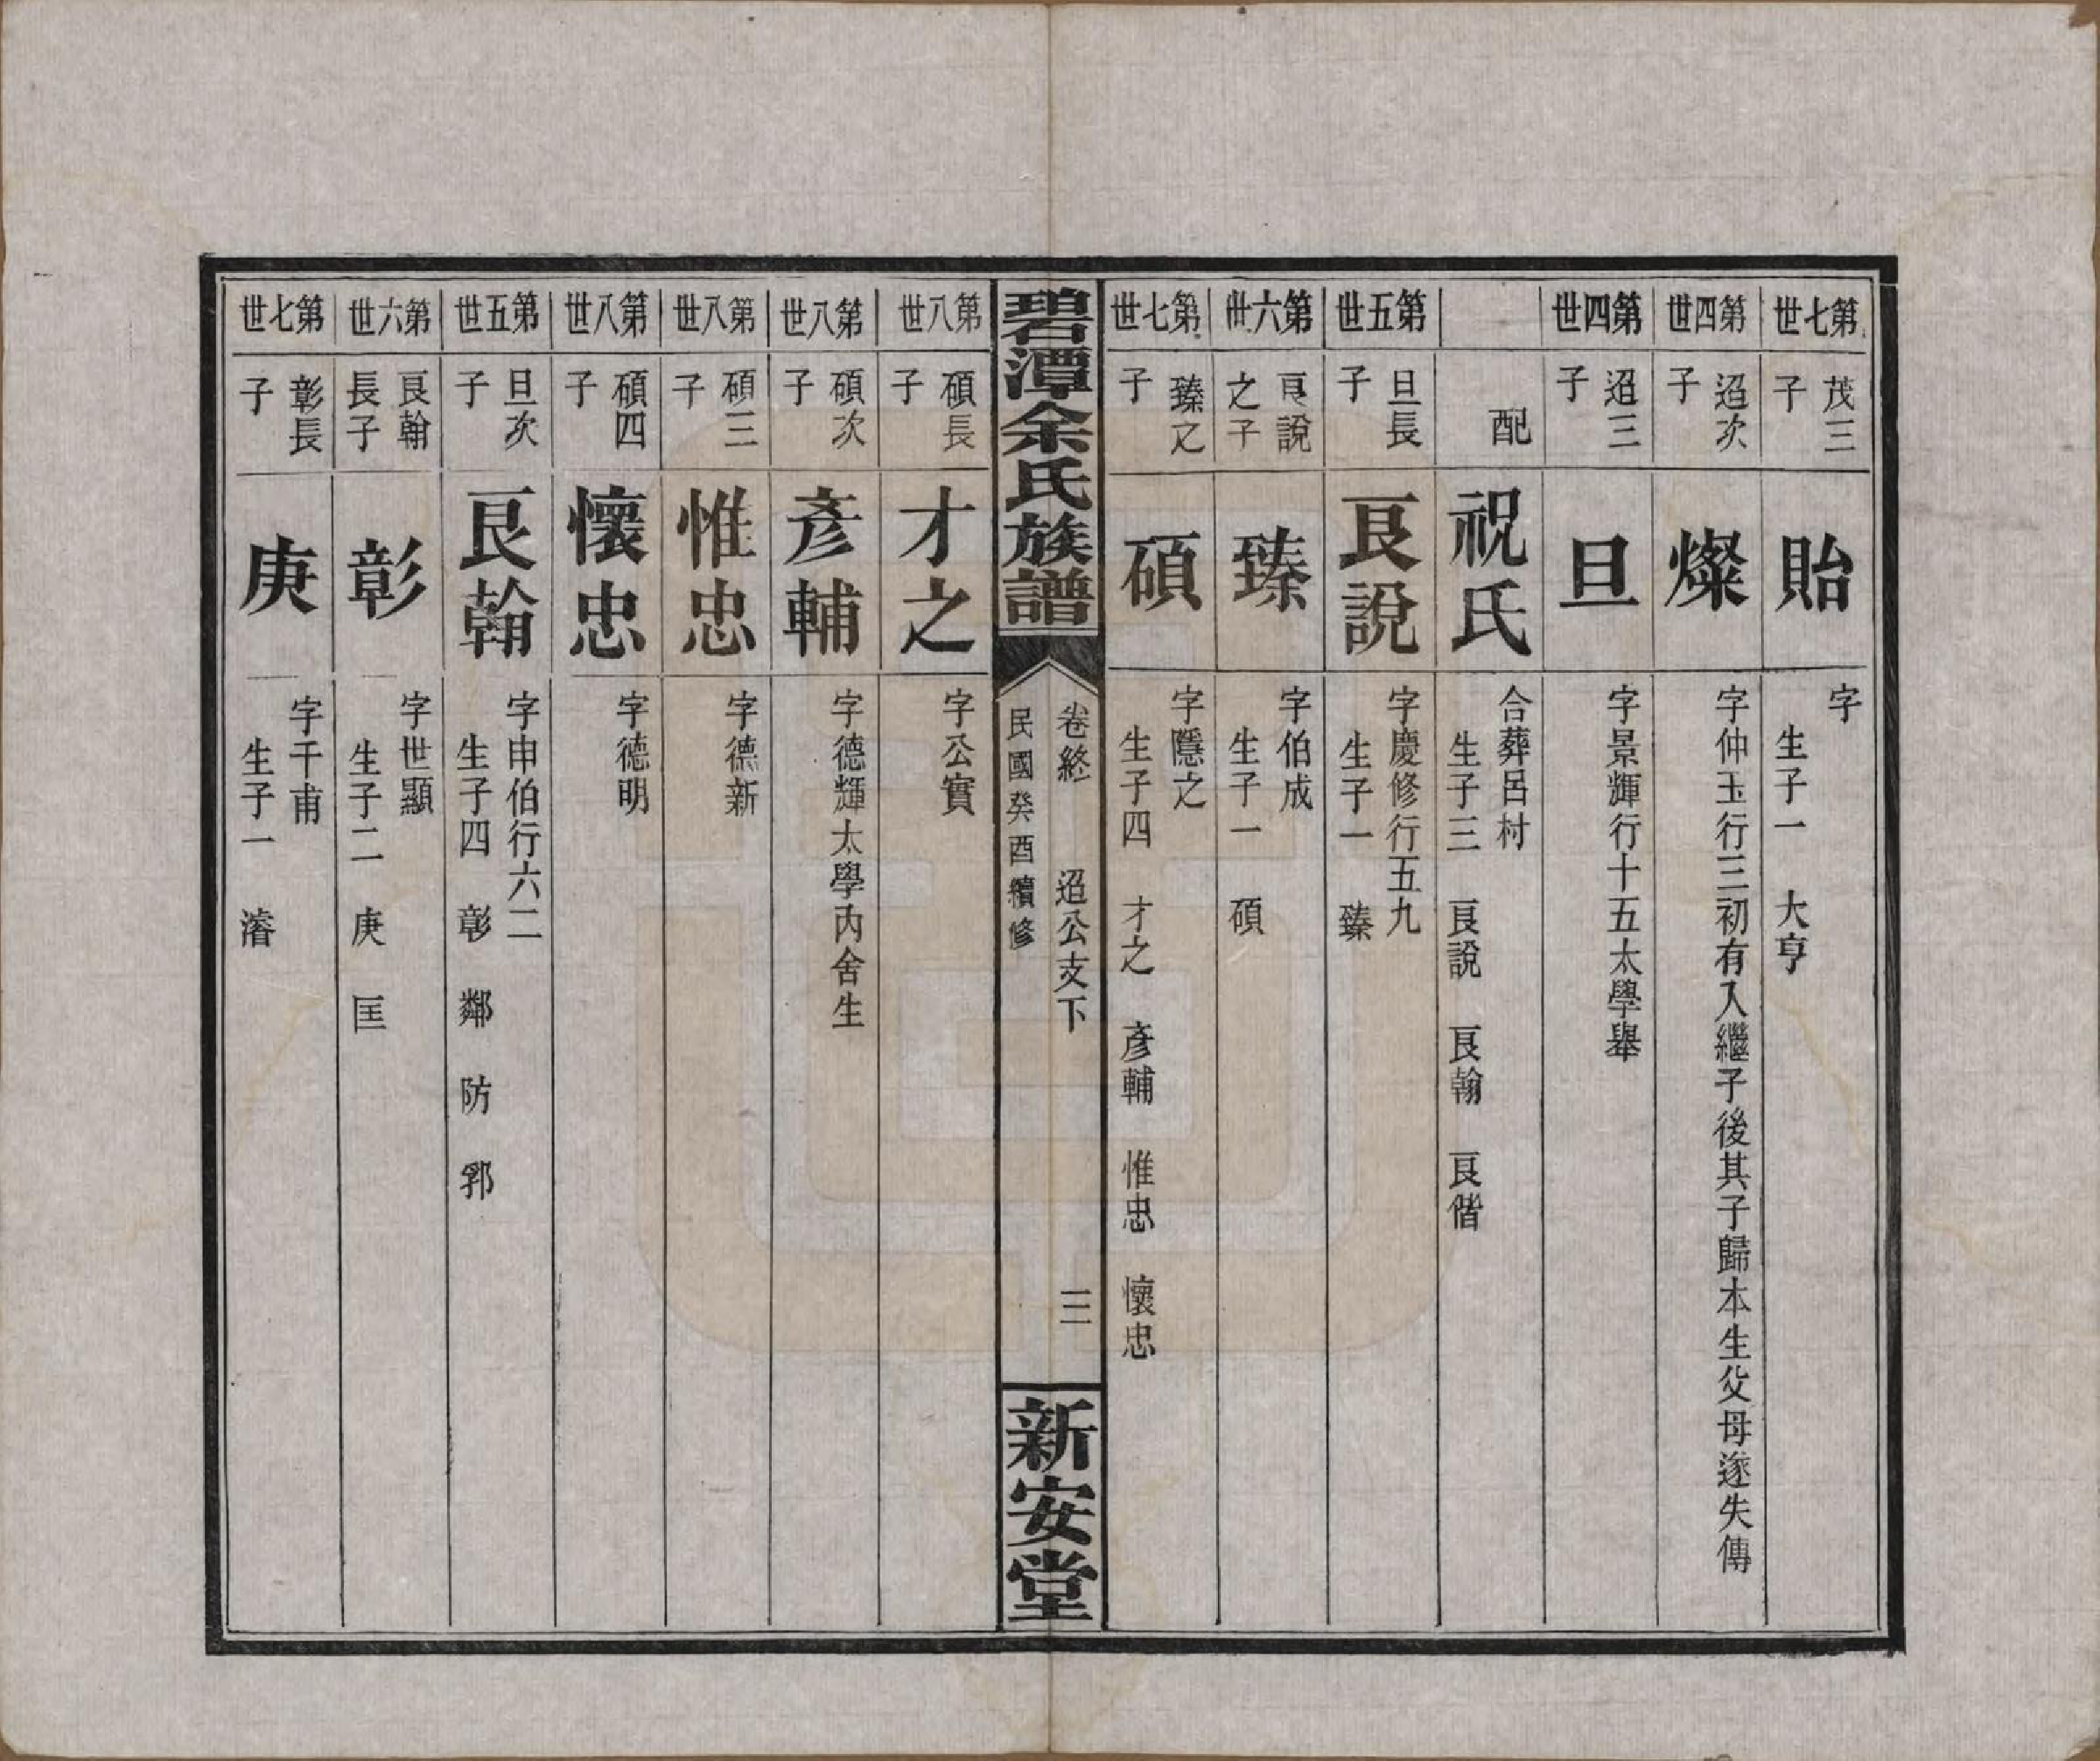 第七世
茂三
子
貽
字
生子一　大亨
第四世
迢次
子
燦
字仲玉行三初有入繼子後其子歸本生父母遂失傳
第四世
迢三
子
旦
字景輝行十五太學舉
配
祝氏
合葬呂村
生子三　良說　良翰　良偕
第五世
旦長
子
良說
字慶修行五九
生子一　臻
第六世
良說
之子
臻
字伯成
生子一　碩
第七世
臻之
子
碩
字隱之
生子四　才之　彥輔　惟忠　懷忠
碧潭余氏族譜
卷終　迢公支下　三
民國癸酉續修
新安堂
第八世
碩長
子
才之
字公實
第八世
碩次
子
彥輔
字德輝太學內舍生
第八世
碩三
子
惟忠
字德新
第八世
碩四
子
懷忠
字德明
第五世
旦次
子
良翰
字申伯行六二
生子四　彰　鄰　防　郛
第六世
良翰
長子
彰
字世顯
生子二　庚　匡
第七世
彰長
子
庚
字千甫
生子一　濬